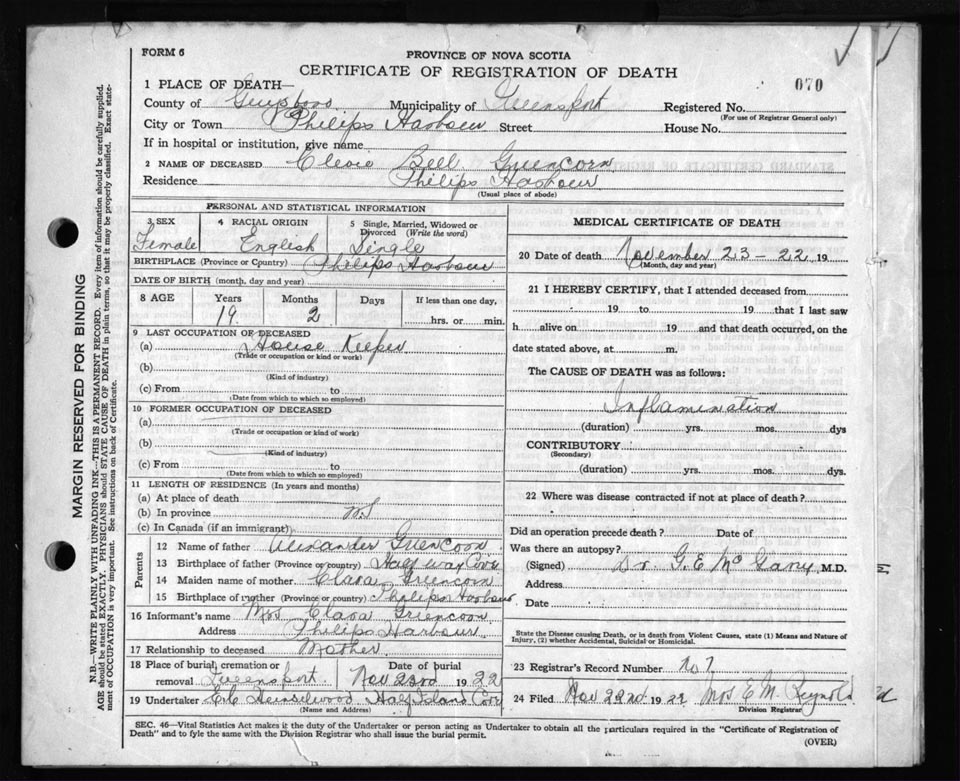 FORM 6
PROVINCE OF NOVA SCOTIA
CERTIFICATE OF REGISTRATION OF DEATH
070
1 PLACE OF DEATH—
County of Guysboro Municipality of Queensport Registered No.
(For use of Registrar General only)
City or Town Philips Harbour Street House No.
If in hospital or institution, give name
2 NAME OF DECEASED Bell Guencorn
Residence Philips Harbour
(Usual place of abode)
PERSONAL AND STATISTICAL INFORMATION
3 SEX 4 RACIAL ORIGIN 5 Single, Married, Widowed or Divorced (Write the word)
Female English Single
BIRTHPLACE (Province or Country) Philips Harbour
DATE OF BIRTH (month, day and year)
8 AGE Years Months Days If less than one day,
19 2 hrs. or min.
9 LAST OCCUPATION OF DECEASED
(a) House Keeper
(Trade or occupation or kind or work)
(b)
(Kind of industry)
(c) From to
(Date from which to which so employed)
10 FORMER OCCUPATION OF DECEASED
(a)
(Trade or occupation or kind or work)
(b)
(Kind of industry)
(c) From to
(Date from which to which so employed)
11 LENGTH OF RESIDENCE (In years and months)
(a) At place of death
(b) In province
(c) In Canada (if an immigrant)
Parents
12 Name of father Alexander Guencoon
13 Birthplace of father (Province or country) Half way Cove
14 Maiden name of mother Clara Greencorn
15 Birthplace of mother (Province or country) Philips Harbour
16 Informant's name Mrs Clara Griencoon
Address Philips Harbour
17 Relationship to deceased Mother
18 Place of burial, cremation or removal Queensport Date of burial Nov 23rd 1922
19 Undertaker Half Island Cove
(Name and Address)
MEDICAL CERTIFICATE OF DEATH
20 Date of death November 23-22 19
(Month, day and year)
21 I HEREBY CERTIFY, that I attended deceased from
19 to 19 that I last saw
h alive on 19 and that death occurred, on the
date stated above, at m.
The CAUSE OF DEATH was as follows:
Inflamination
(duration) yrs. mos. dys
CONTRIBUTORY
(Secondary)
(duration) yrs. mos. dys.
22 Where was disease contracted if not at place of death?
Did an operation precede death? Date of
Was there an autopsy?
(Signed) Dr G.E. McGarry M.D.
Address
Date
State the Disease causing Death, or in death from Violent Causes, state (1) Means and Nature of Injury, (2) whether Accidental, Suicidal or Homicidal.
23 Registrar's Record Number No 7
24 Filed Nov 1922 Mrs E M Reynolds
Division Registrar
SEC. 46—Vital Statistics Act makes it the duty of the Undertaker or person acting as Undertaker to obtain all the particulars required in the "Certificate of Registration of Death" and to fyle the same with the Division Registrar who shall issue the burial permit.
(OVER)
MARGIN RESERVED FOR BINDING
N.B.—WRITE PLAINLY WITH UNFADING INK—THIS IS A PERMANENT RECORD. Every item of information should be carefully supplied.
AGE should be stated EXACTLY. PHYSICIANS should STATE CAUSE OF DEATH in plain terms, so that it may be properly classified. Exact statement of OCCUPATION is very important. See instructions on back of Certificate.